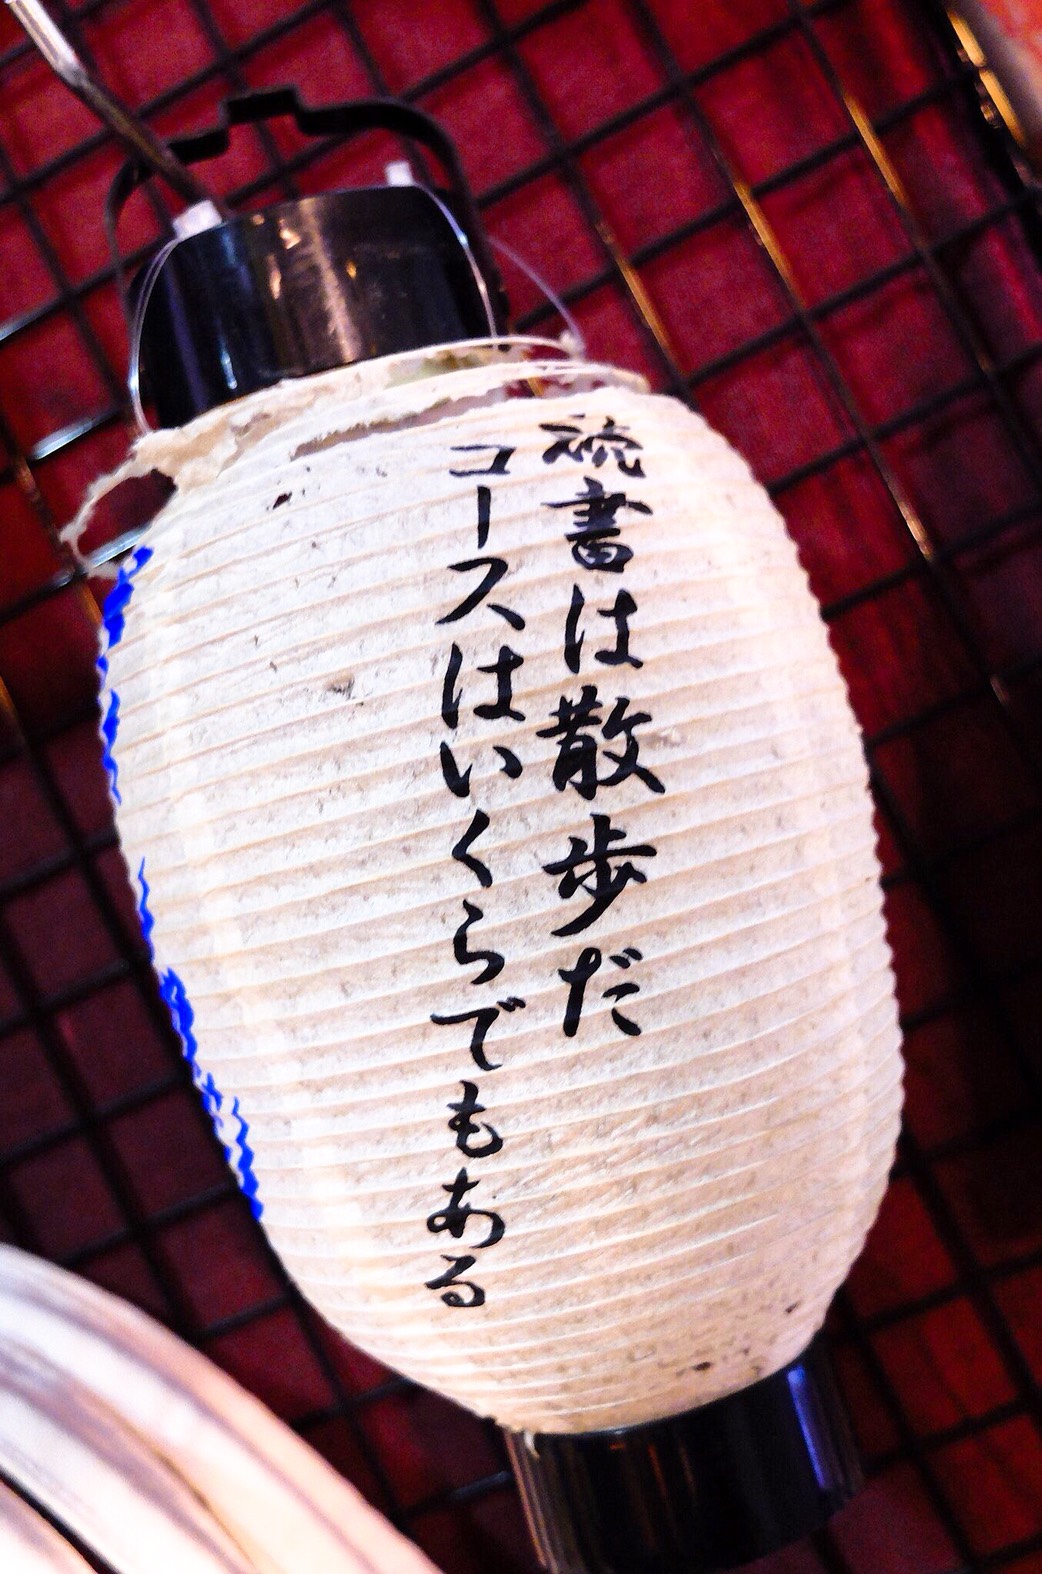 読書は散歩だ
コースはいくらでもある